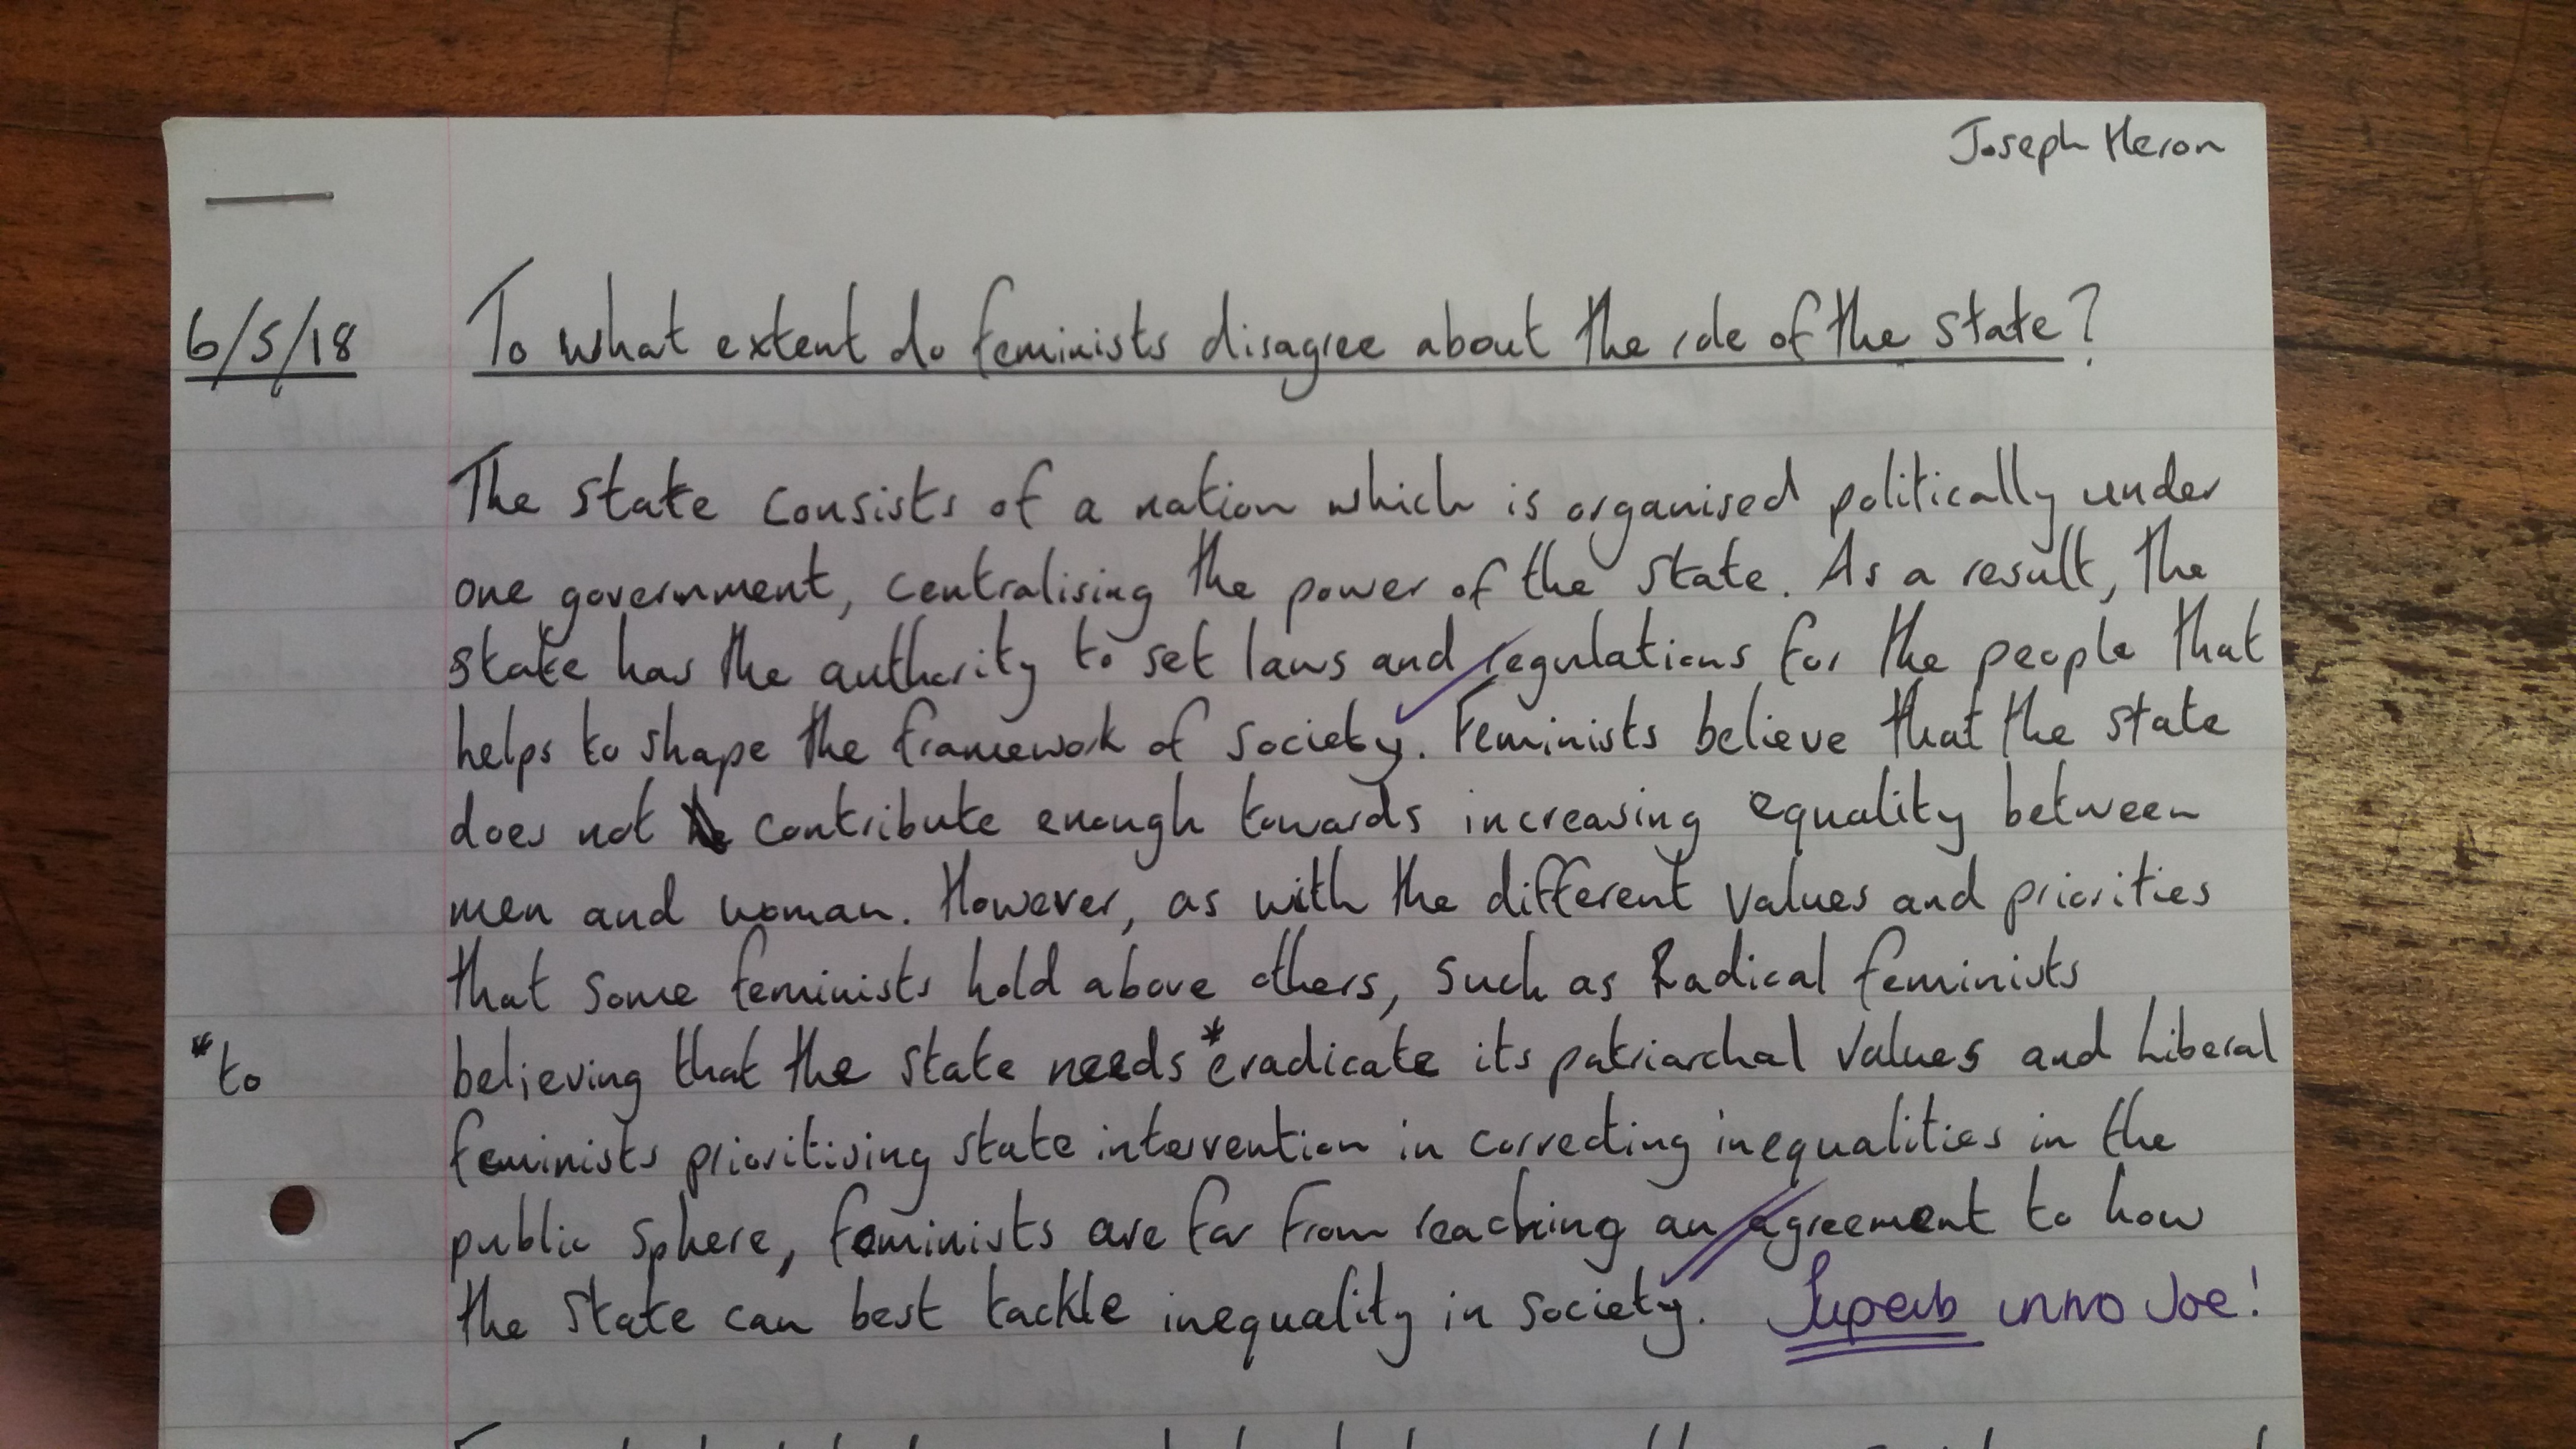 Joseph Heron
6/5/18
To what extent do feminists disagree about the role of the state?
The state consists of a nation which is organised politically under
one government, centralising the power of the state. As a result, the
state has the authority to set laws and regulations for the people that
helps to shape the framework of society. Feminists believe that the state
does not contribute enough towards increasing equality between
men and woman. However, as with the different values and priorities
that some feminists hold above others, such as Radical feminists
*to
believing that the state needs *eradicate its patriarchal values and Liberal
feminists prioritising state intervention in correcting inequalities in the
public sphere, feminists are far from reaching an agreement to how
the state can best tackle inequality in society. Superb intro Joe!